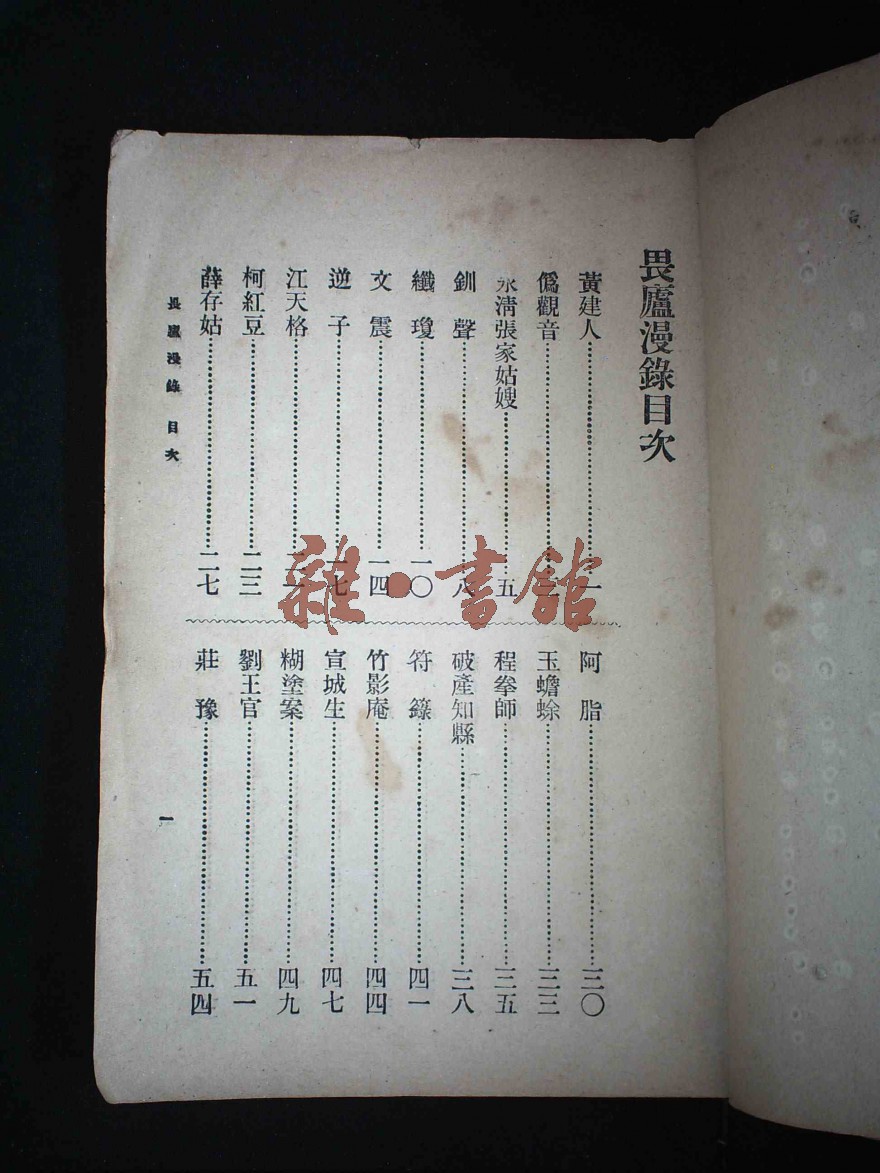 畏廬漫錄目次
黃建人……一
僞觀音……
永淸張家姑嫂……五
釧聲……八
纖瓊……一〇
文震……一四
逆子……一七
江天格……二一
柯紅豆……二三
薛存姑……二七
阿脂……三〇
玉蟾蜍……三三
程拳師……三五
破產知縣……三八
符籙……四一
竹影庵……四四
宣城生……四七
糊塗案……四九
劉王官……五一
莊豫……五四
畏廬漫錄 目次
一
雜·書館